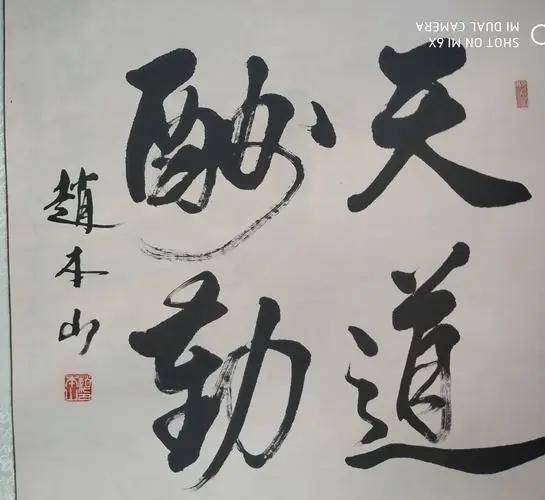 天道
酬勤
趙本山
SHOT ON MI 6X
MI DUAL CAMERA